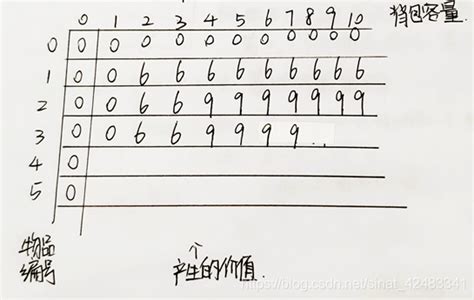 0 1 2 3 4 5 6 7 8 9 10 背包容量
0 0 0 0 0 0 0 0 0 0 0 0
1 0 0 6 6 6 6 6 6 6 6 6
2 0 0 6 6 9 9 9 9 9 9 9
3 0 0 6 6 9 9 9 9 ..
4 0
5 0
物品
编号
个
产生的价值.
https://blog.csdn.net/sinat_42483341